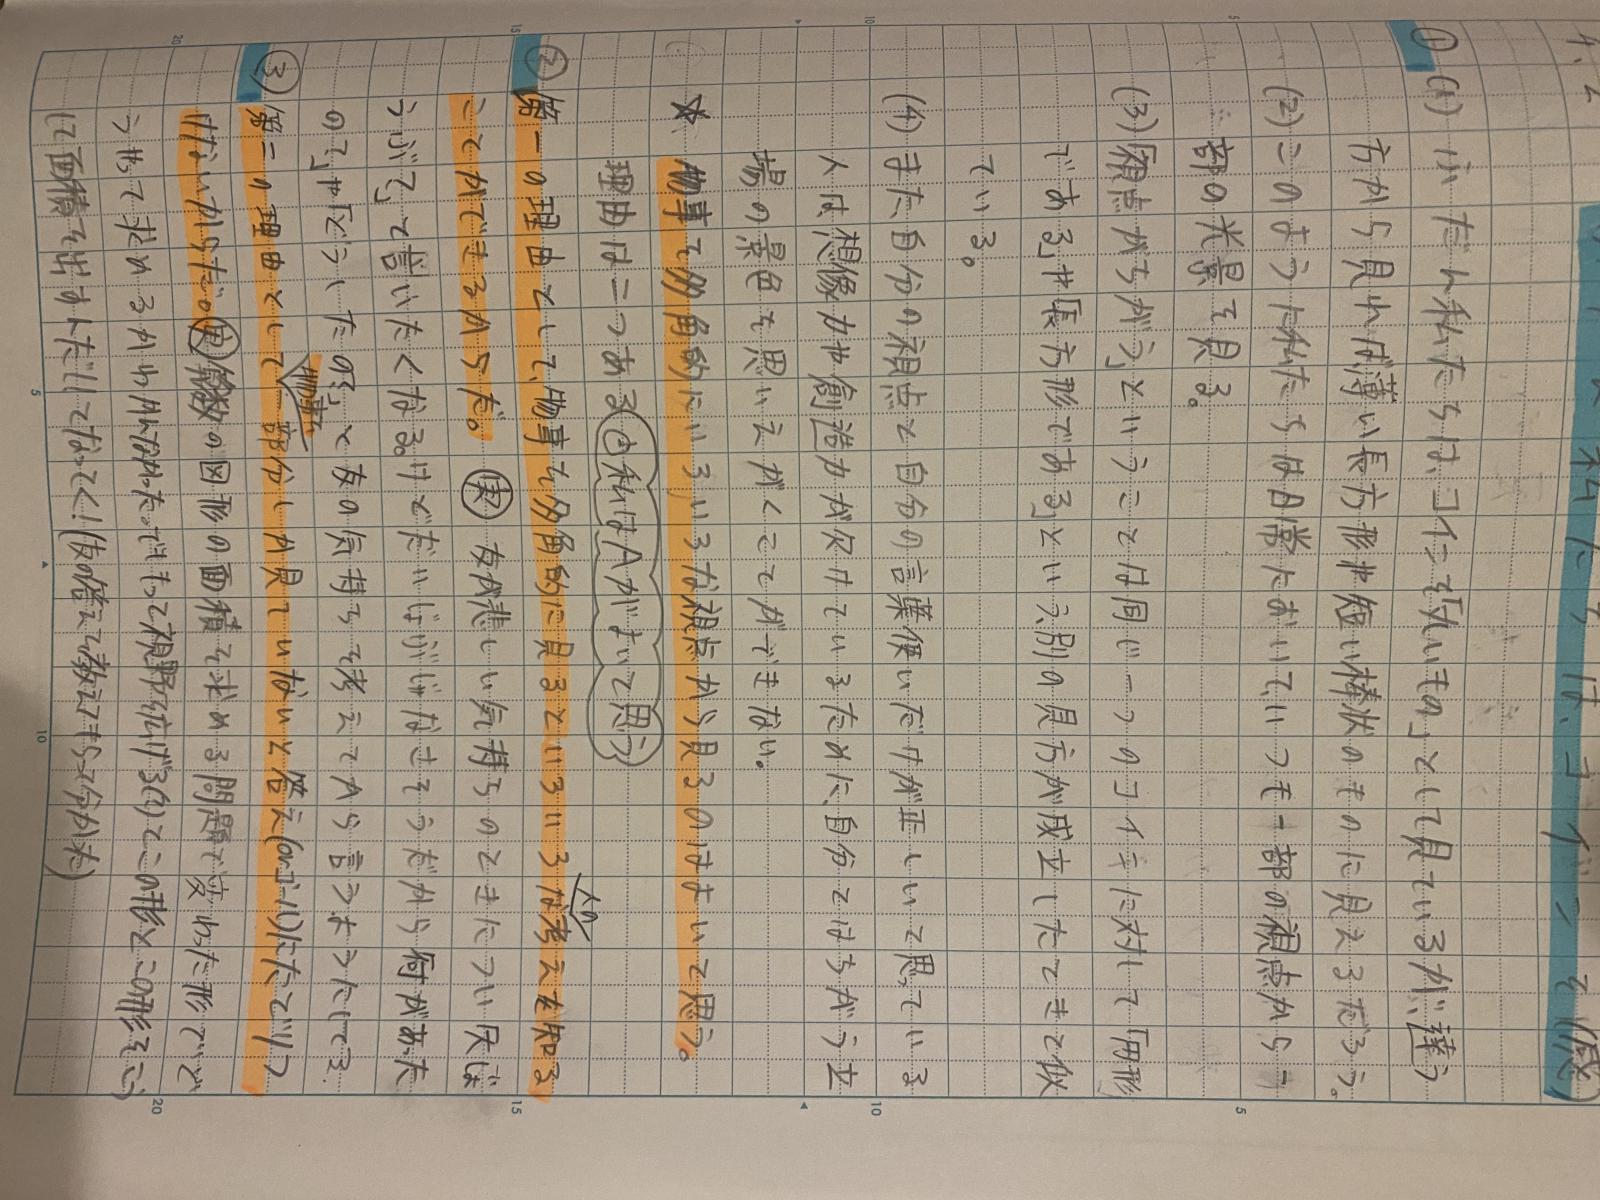 ①(1) ふだん私たちは、コインを「丸いもの」として見ているが、違う
方から見れば薄い長方形や短い棒状のものに見えるだろう。
(2)このように私たちは日常において、いつも一部の視点から一
部の光景を見る。
(3)「原点がちがう」ということは同じ一つのコインに対して「円形
である」や「長方形である」という別の見方が成立したときと似
ている。
(4)また、自分の視点と自分の言葉使いだけが正しいと思っている
人は想像力や創造力が欠けているために、自分とはちがう立
場の景色を思いえがくことができない。
☆物事を多角的にいろいろな視点から見るのはよいと思う。
理由は二つある 私はAがよいと思う
②第一の理由として、物事を多角的に見るといろいろな人の考えを知る
ことができるからだ。 実 友が悲しい気持ちのときについ「大じょ
うぶ?」と言いたくなる。けどだいじょうぶじゃなさそうだから「何があった
の?」や「どうしたの?」と友の気持ちを考えてから言うようにしてる。
③第二の理由として物事を一部分しか見ていないと答えにたどりつ
けないからだ。実 算数の図形の面積を求める問題で変わった形でど
うやって求めるかわかんなかった。でもちって視野を広げる(?)とこの形とこの形をこう
に面積を出すんだ!!ってなって<!(友の答えで教えてもらって分かった)